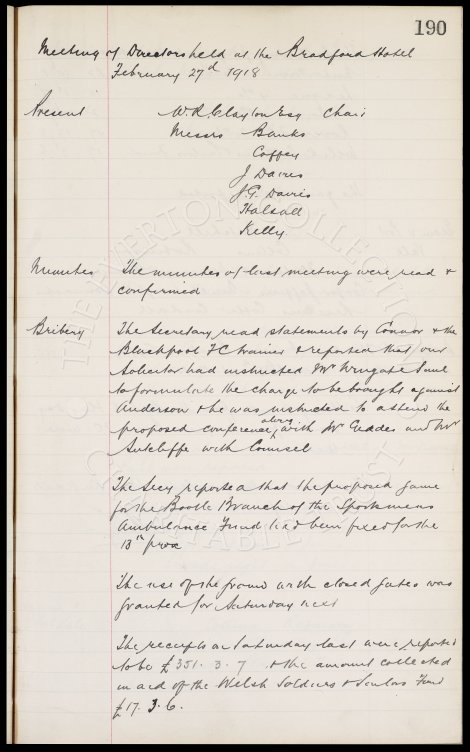 190
Meeting of Directors held at the Bradford Hotel
February 27th 1918
Present W.R. Clayton Esq Chair
Messrs Banks
Coffey
J Davies
J.G. Davies
Halsall
Kelly
Minutes The minutes of last meeting were read &
confirmed
Bribery The Secretary read statements by Connor & the
Blackpool FC trainer & reported that our
Solicitor had instructed Mr Wingate Saul
to formulate the charge to be brought against
Anderson & he was instructed to attend the
proposed conference along with Mr Geddes and Mr
Sutcliffe with Counsel
The Secy reported that the proposed game
for the Bootle Branch of the Sportsmens
Ambulance Fund had been fixed for the
13th prox
The use of the ground with closed gates was
granted for Saturday next
The receipts on Saturday last were reported
to be £351. 3. 7 & the amount collected
in aid of the Welsh Soldiers & Sailors Fund
£17. 3. 6.
THE EVERTON COLLECTION CHARITABLE TRUST